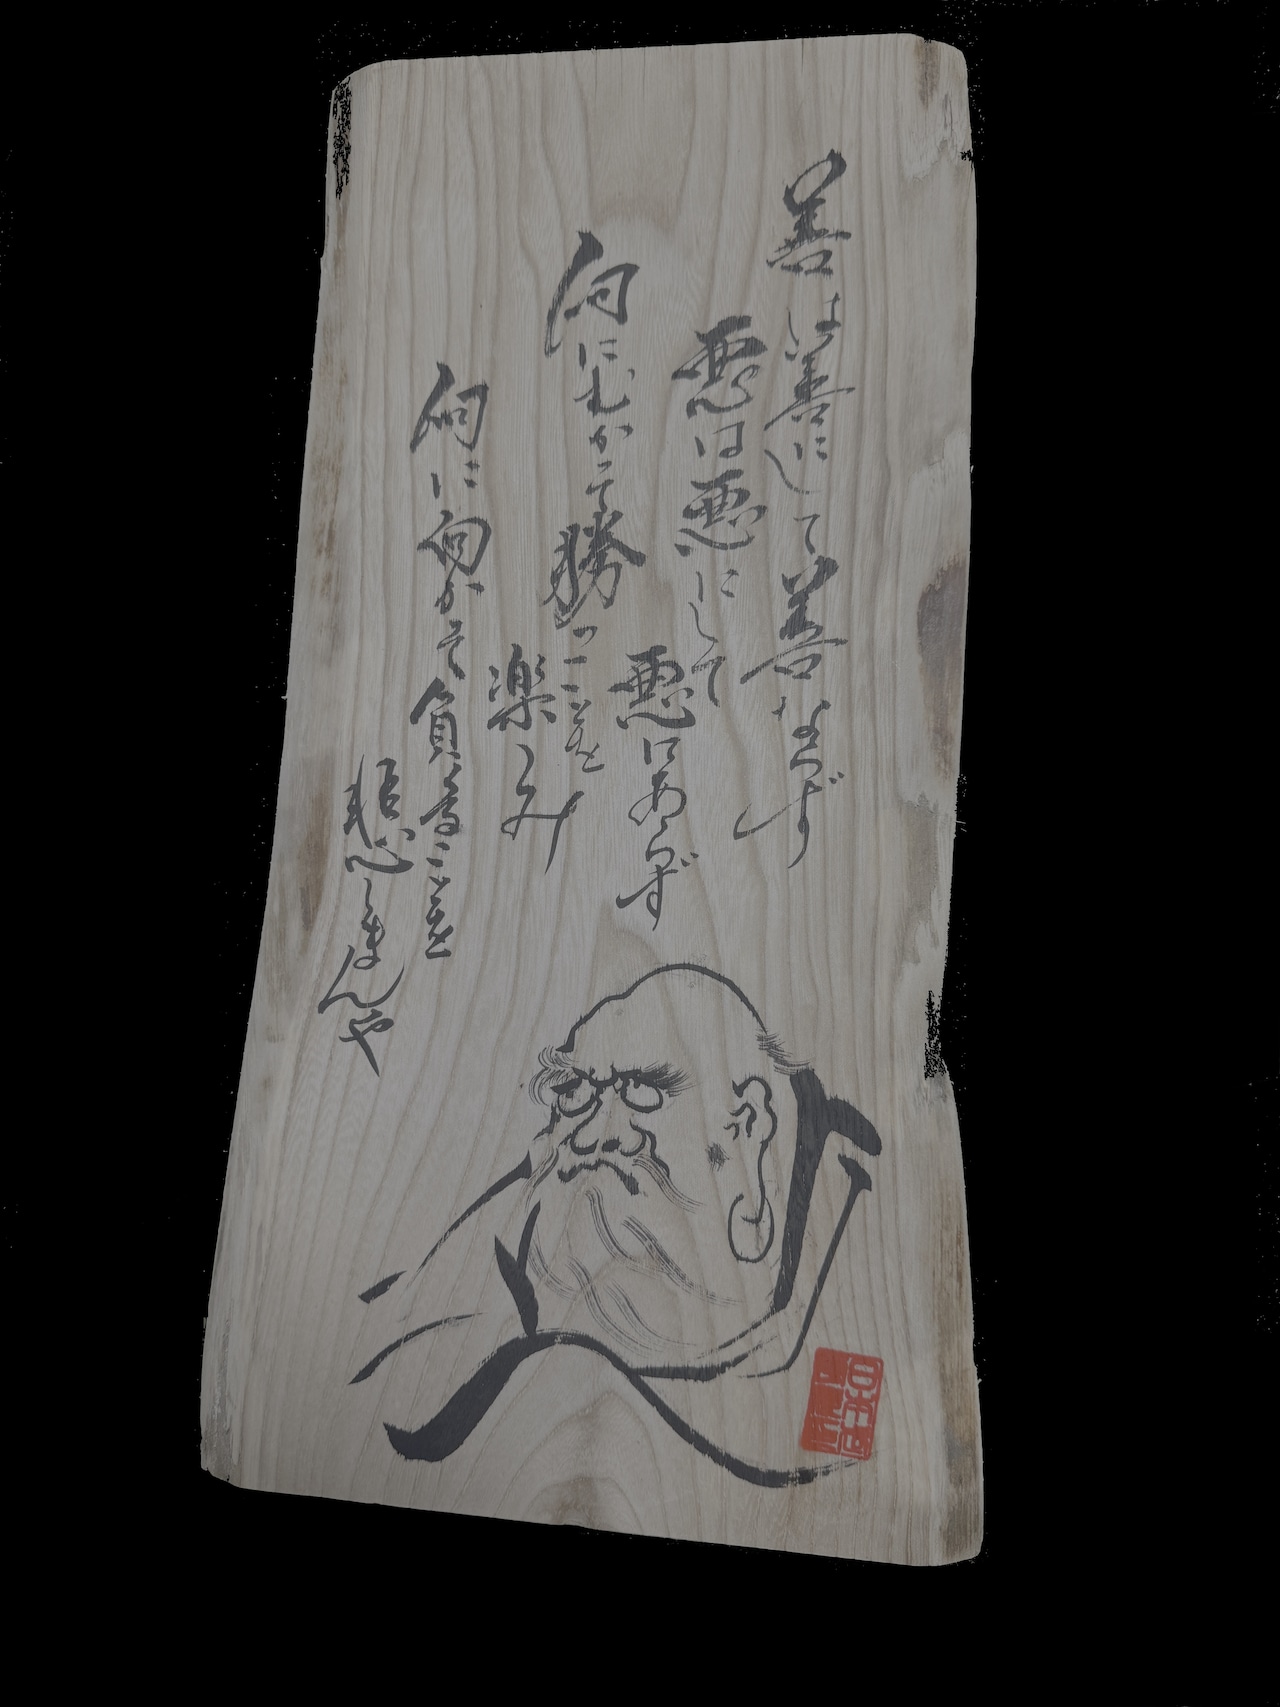 善は善にして善ならず
悪は悪にして
悪にあらず
何にむかって勝つことを
楽しみ
何に向かって負ることを
悲しまんや